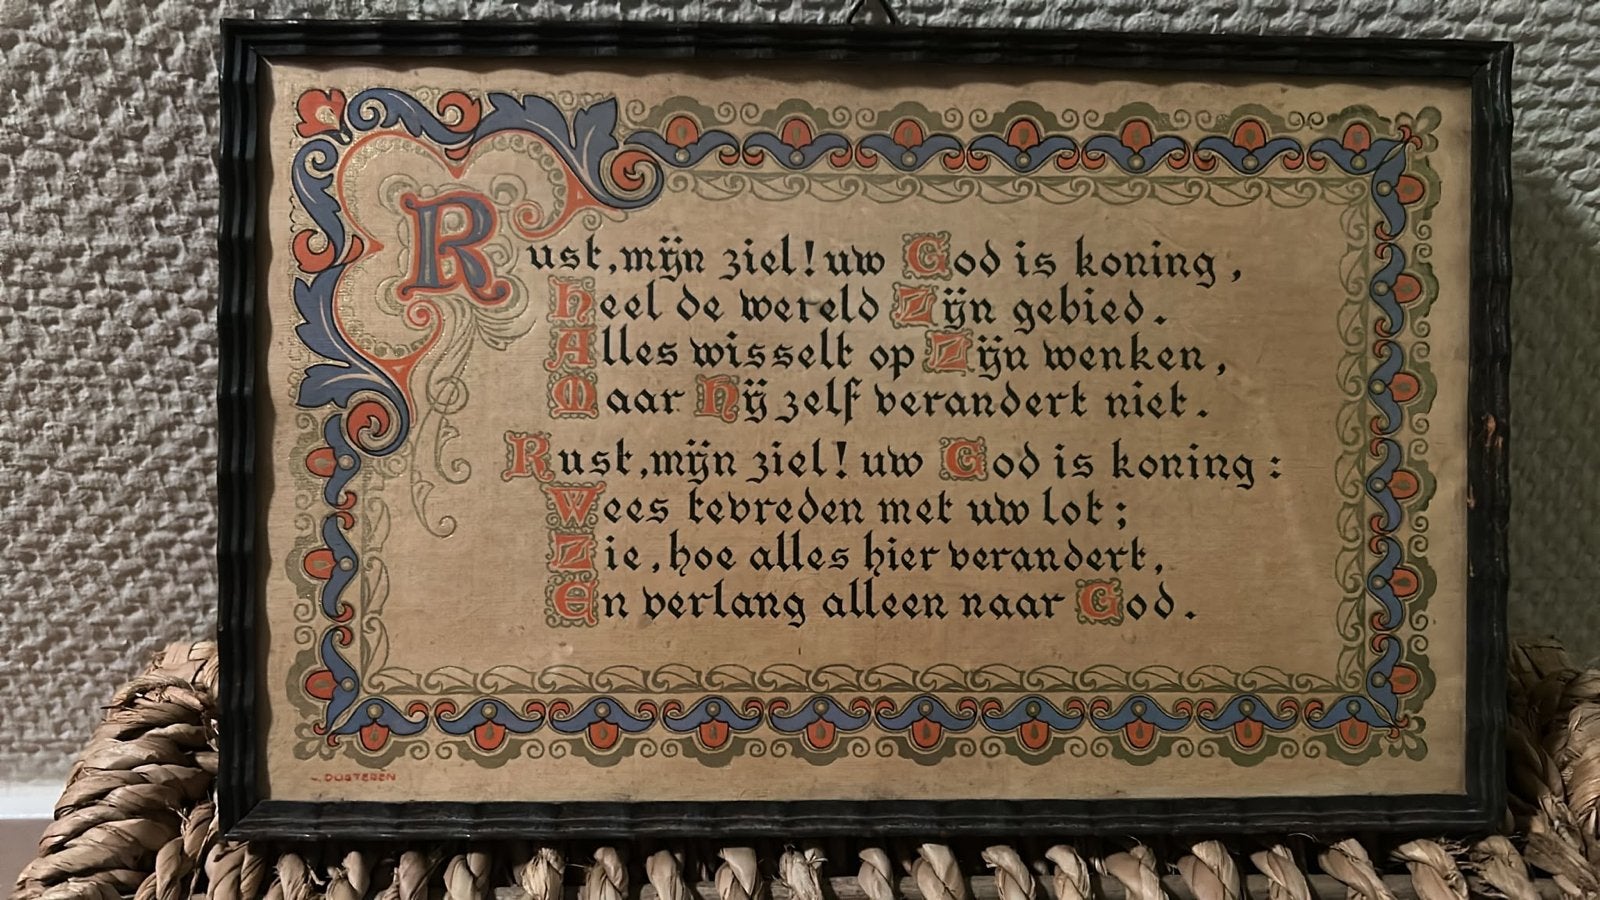 Rust, mijn ziel! uw God is koning,
heel de wereld Zijn gebied.
Alles wisselt op Zijn wenken,
Maar Hij zelf verandert niet.
Rust, mijn ziel! uw God is koning:
Wees tevreden met uw lot;
Zie, hoe alles hier verandert,
En verlang alleen naar God.